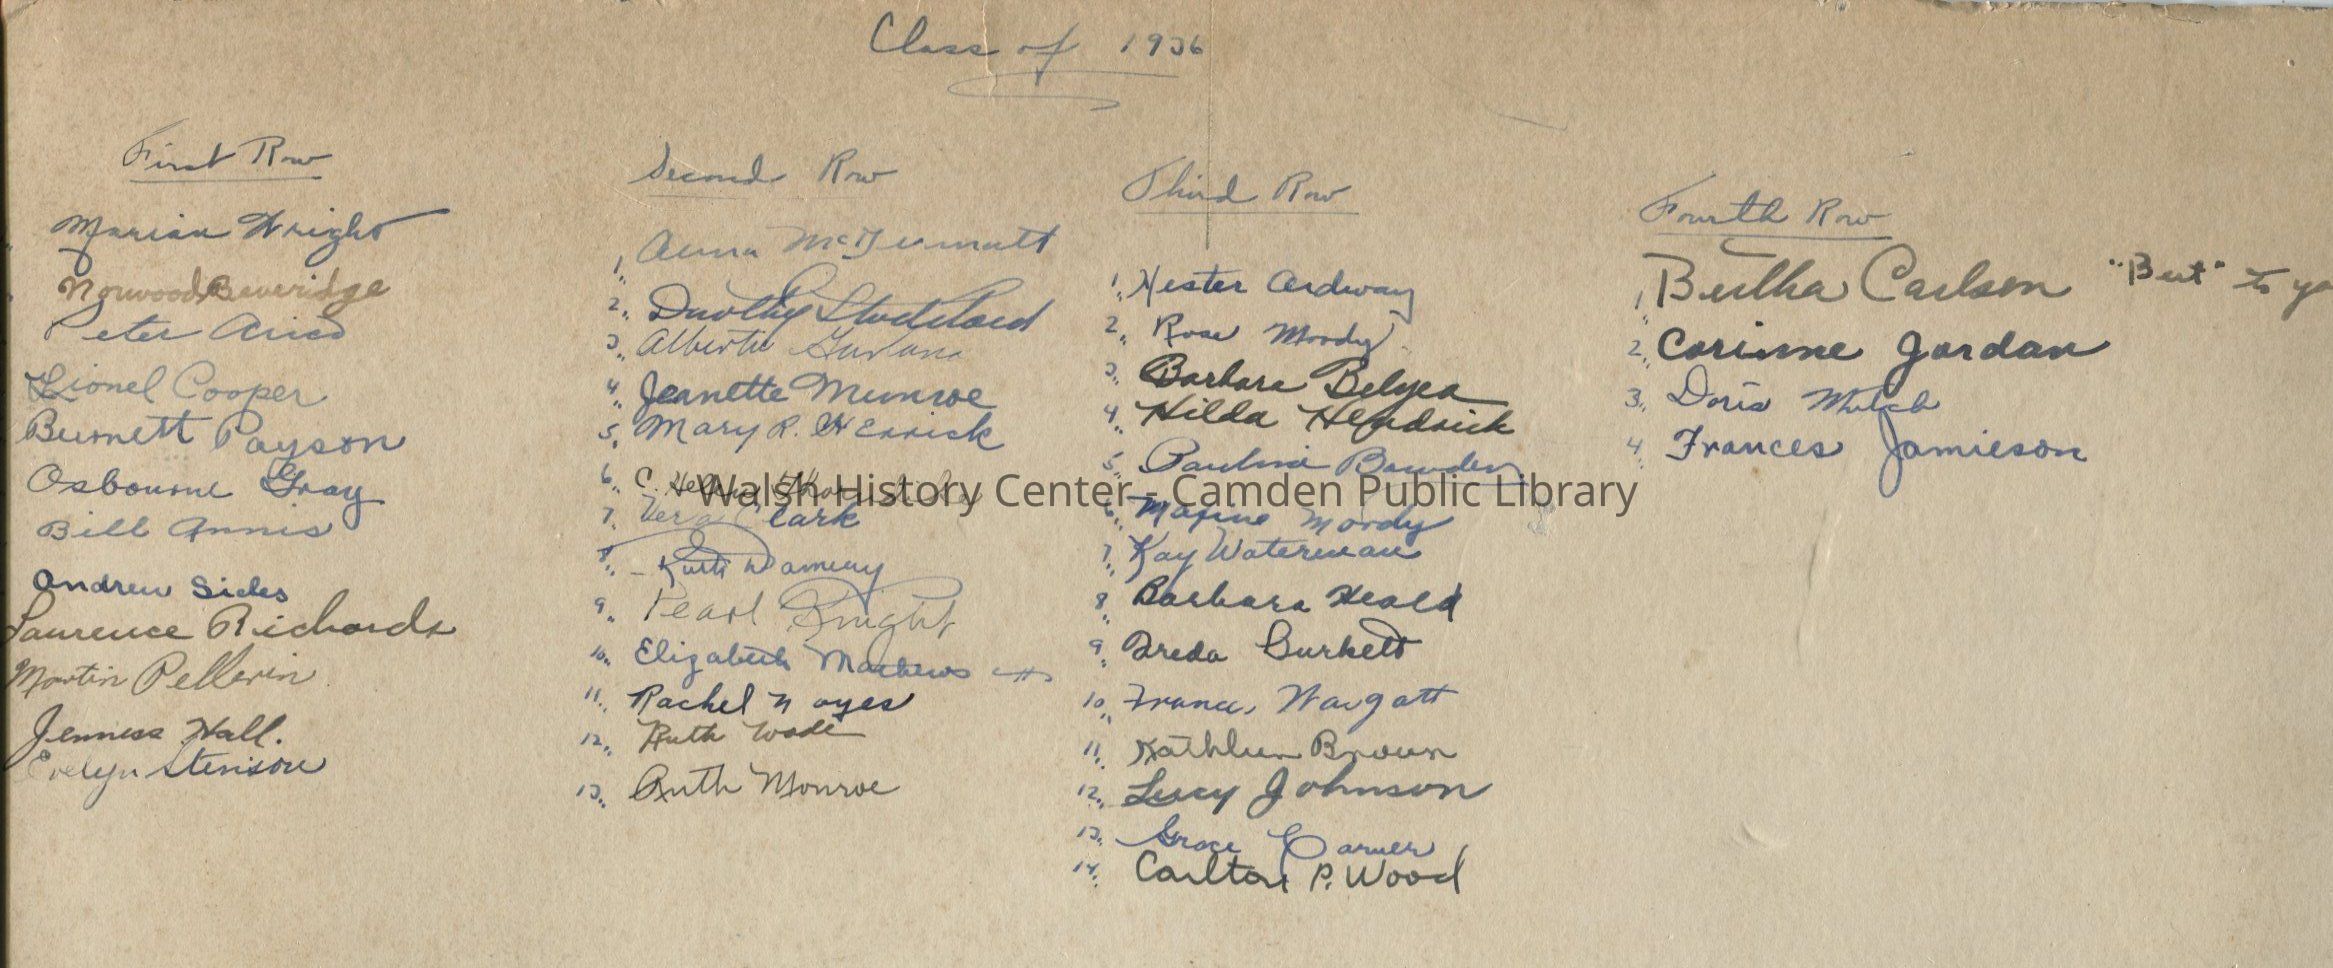 Class of 1936
First Row
Marian Wright
Norwood Beveridge
Peter Arico
Lionel Cooper
Burnett Payson
Osbourne Gray
Bill Annis
Andrew Sides
Laurence Richards
Martin Pellerin
Jenness Hall.
Evelyn Stenson
Second Row
1. Anna McDermott
2. Dorothy Studdard
3. Alberta
4. Jeanette Munroe
5. Mary R. Herrick
6. C. Helena
7. Vera Clark
8. Ruth
9. Pearl Knight
10. Elizabeth Mathews
11. Rachel Noyes
12. Ruth Wade
13. Ruth Monroe
Third Row
1. Hester Ordway
2. Rose Moody
3. Barbara Belyea
4. Hilda Hendrick
5. Pauline Bowden
6. Maxine Moody
7. Kay Waterman
8. Barbara Heald
9. Freda Burkett
10. Frances Waygatt
11. Kathleen Brown
12. Lucy Johnson
13. Grace Carver
14. Carlton P. Wood
Fourth Row
1. Bertha Carlson "Bert" to yo
2. Corinne Jordan
3. Doris
4. Frances Jamieson
Walsh History Center - Camden Public Library